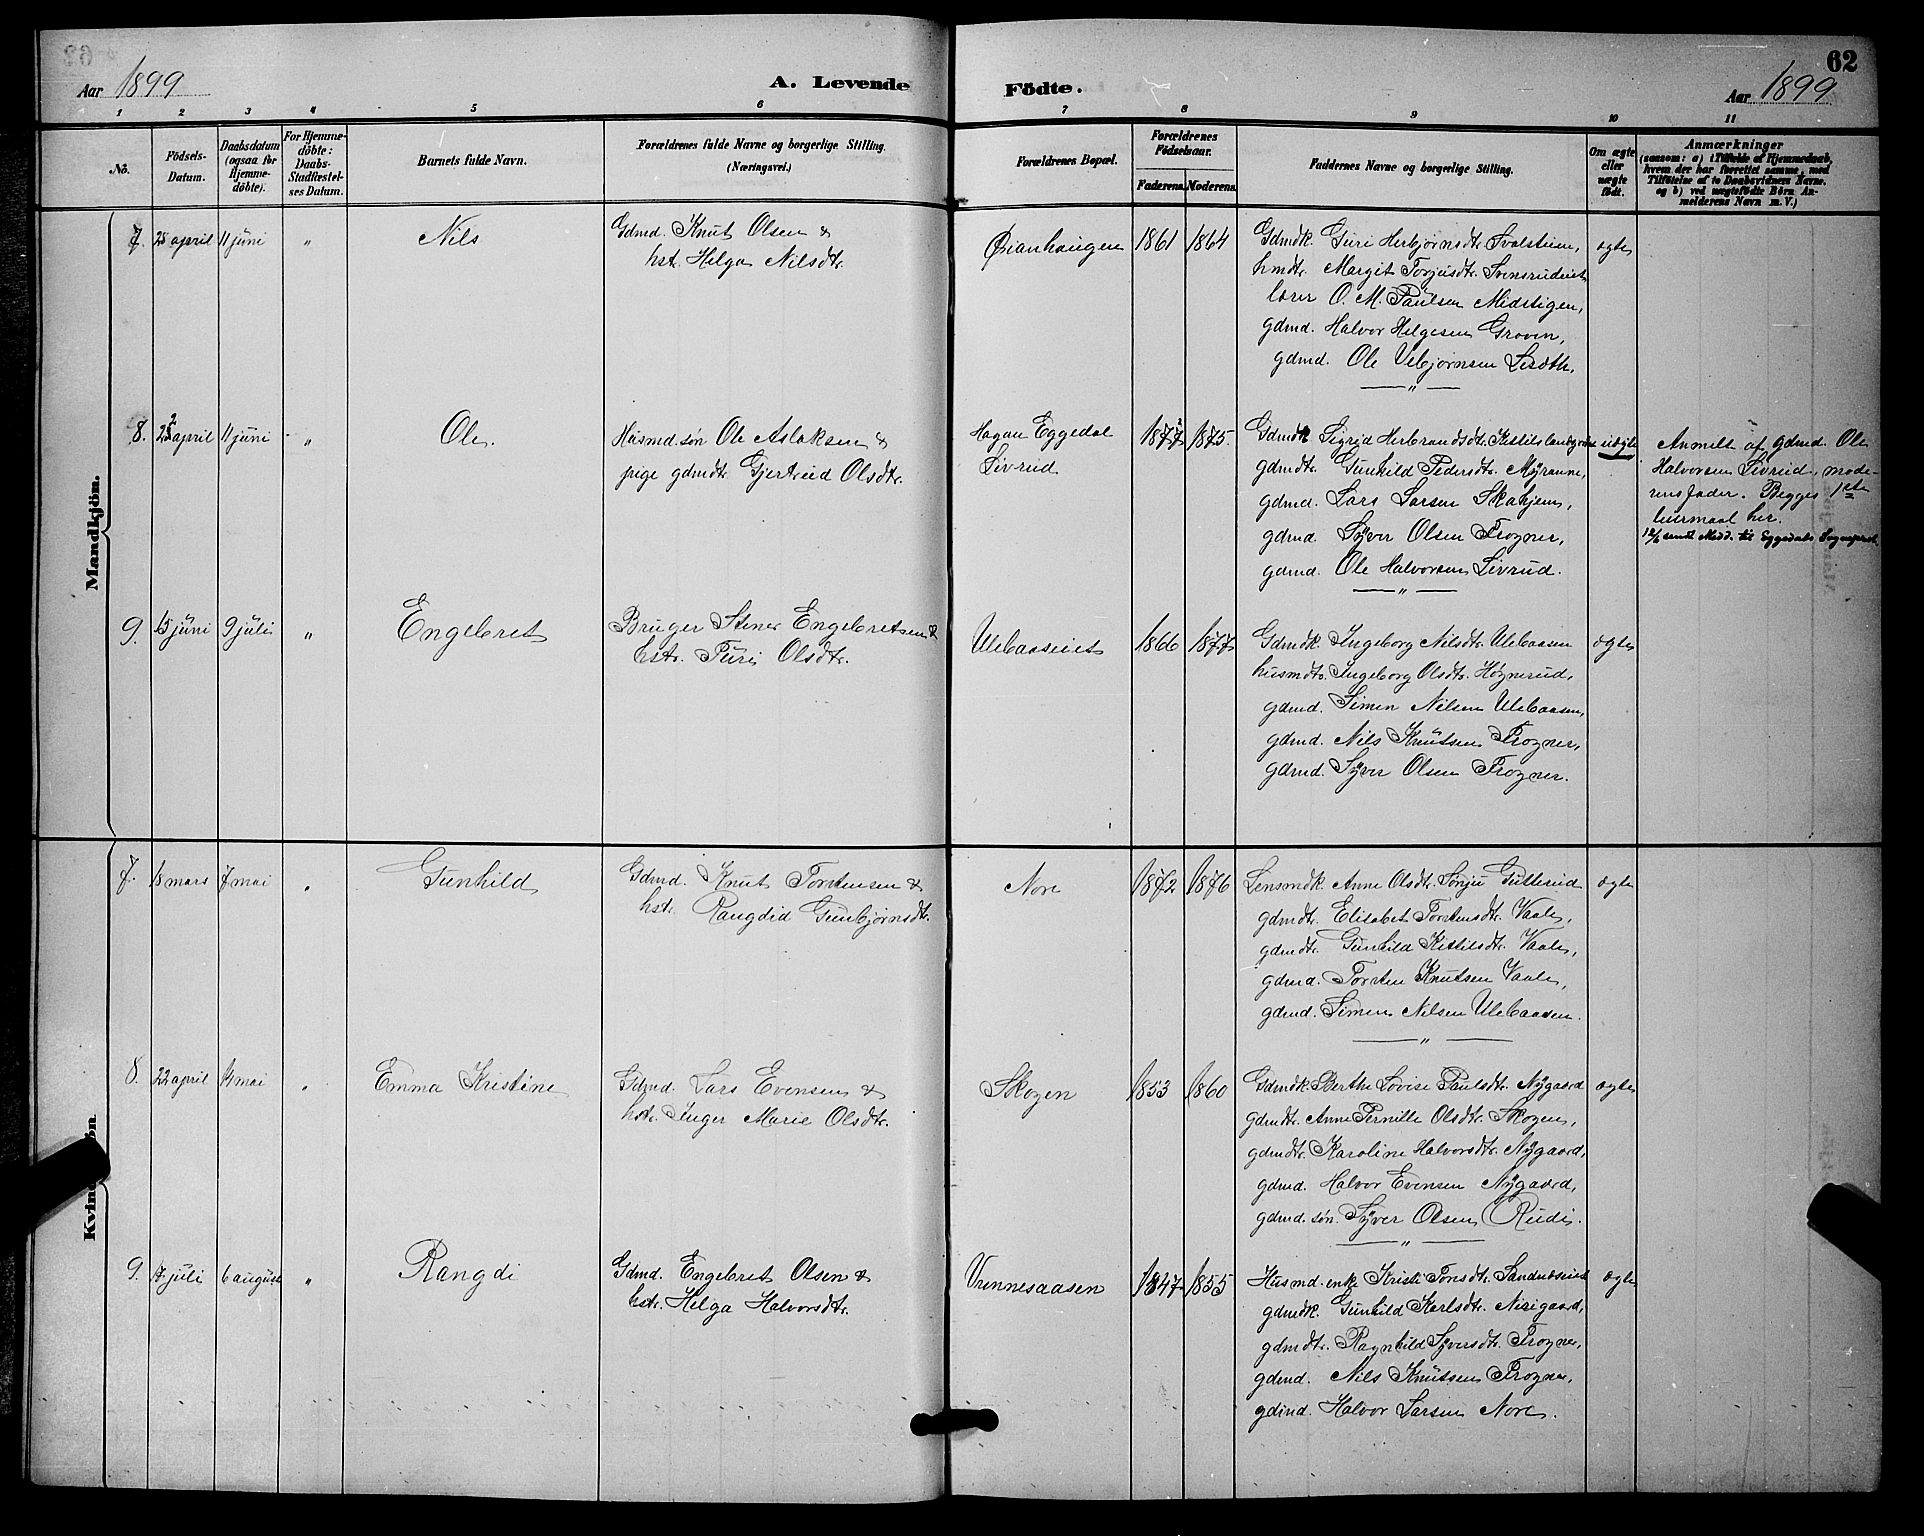 62
Aar 1899
A. Levende Födte.
Aar 1899
1 2 3 4 5 6 7 8 9 10 11
No.
Födsels-Datum.
Daabsdatum (ogsaa for Hjemmedöbte).
For Hjemmedöbte: Daabs-Stadfæstelses Datum.
Barnets fulde Navn.
Forældrenes fulde Navne og borgerlige Stilling.
(Næringsvei.)
Forældrenes Bopæl.
Forældrenes Födselsaar.
Faderens. Moderens.
Faddernes Navne og borgerlige Stilling.
Om ægte eller uægte födt.
Anmærkninger
(saasom: a) i Tilfælde af Hjemmedaab, hvem der har forrettet samme, med Tilföielse af to Daabsvidners Navne, og b) ved uægtefödte Börn Anmelderens Navn m. V.)
Mandkjön.
7. 25 april 11 juni " Nils
Gdmd. Knut Olsen &
hst. Helga Nilsdtr.
Øianhaugen 1861 1864
Gdmdk. Guri Herbjørnsdtr. Svalstuen,
hmdtr. Margit Torjusdtr. Svensrudeiet
lærer O. M. Paulsen Midstigen,
gdmd. Halvor Helgesen Groven,
gdmd. Ole Vebjørnsen
ægte
8. april 11 juni " Ole.
Husmd. søn Ole Aslaksen &
pige gdmdt. Gjertrud Olsdtr.
Hagan Eggedal
Sivrud
1875.
Gdmdk. Sigrid Herbrandsdtr.
gdmdtr. Gunhild Pedersdtr. Myranne,
gdmd. Lars Larsen Skahjem,
gdmd. Syver Olsen Frogner,
gdmd. Ole Halvorsen Sivrud.
uægte
Anmelt af gdmd. Ole
Halvorsen Sivrud, mode-
rens fader. Begges 1ste
leiermaal her.
12/6 sendt Medd. til Eggedals Sogneprest
9. 15 juni 9 juli " Engebret
Bruger Stener Engebretsen &
hst. Turi Olsdtr.
Ulebaaseiet 1866 1877
Gdmdk. Ingeborg Nilsdtr. Ulebaasen
husmdtr. Ingeborg Olsdtr. Høgnerud,
gdmd. Simen Nilsen Ulebaasen,
gdmd. Nils Knutsen Frogner,
gdmd. Syver Olsen Frogner.
ægte
7. 18 mars 7 mai " Gunhild
Gdmd. Knut Torstensen &
hst. Rangdid Gunbjørnsdtr.
Nore 1872 1876
Lensmdk. Anne Olsdtr. Sønju Gutterud
gdmdtr. Elisabet Torstensdtr. Vaale,
gdmdtr. Gunhild Kittilsdtr. Vaale,
gdmd. Torsten Knutsen Vaale,
gdmd. Simen Nilsen Ulebaasen.
ægte
8. 22 april 14 mai " Emma Kristine
Gdmd. Lars Evensen &
hst. Inger Marie Olsdtr.
Skogen 1853 1860
Gdmdk. Berthe Lovise Paulsdtr. Nygaard
gdmdtr. Anne Pernille Olsdtr. Skogen,
gdmdtr. Karoline Halvorsdtr. Nygaard,
gdmd. Halvor Evensen Nygaard,
gdmd. søn. Syver Olsen Rudi.
ægte
9. 17 juli 6 august " Rangdi
Gdmd. Engebret Olsen &
hst. Helga Halvorsdtr.
Vrennesaasen 1847 1855
Husmd. enke Kristi Tonsdtr. Sandnæseiet
gdmdk. Gunhild Karlsdtr. Nirigaard,
gdmdtr. Ragnhild Syversdtr. Frogner,
gdmd. Nils Knutsen Frogner,
gdmd. Halvor Larsen Nore.
ægte